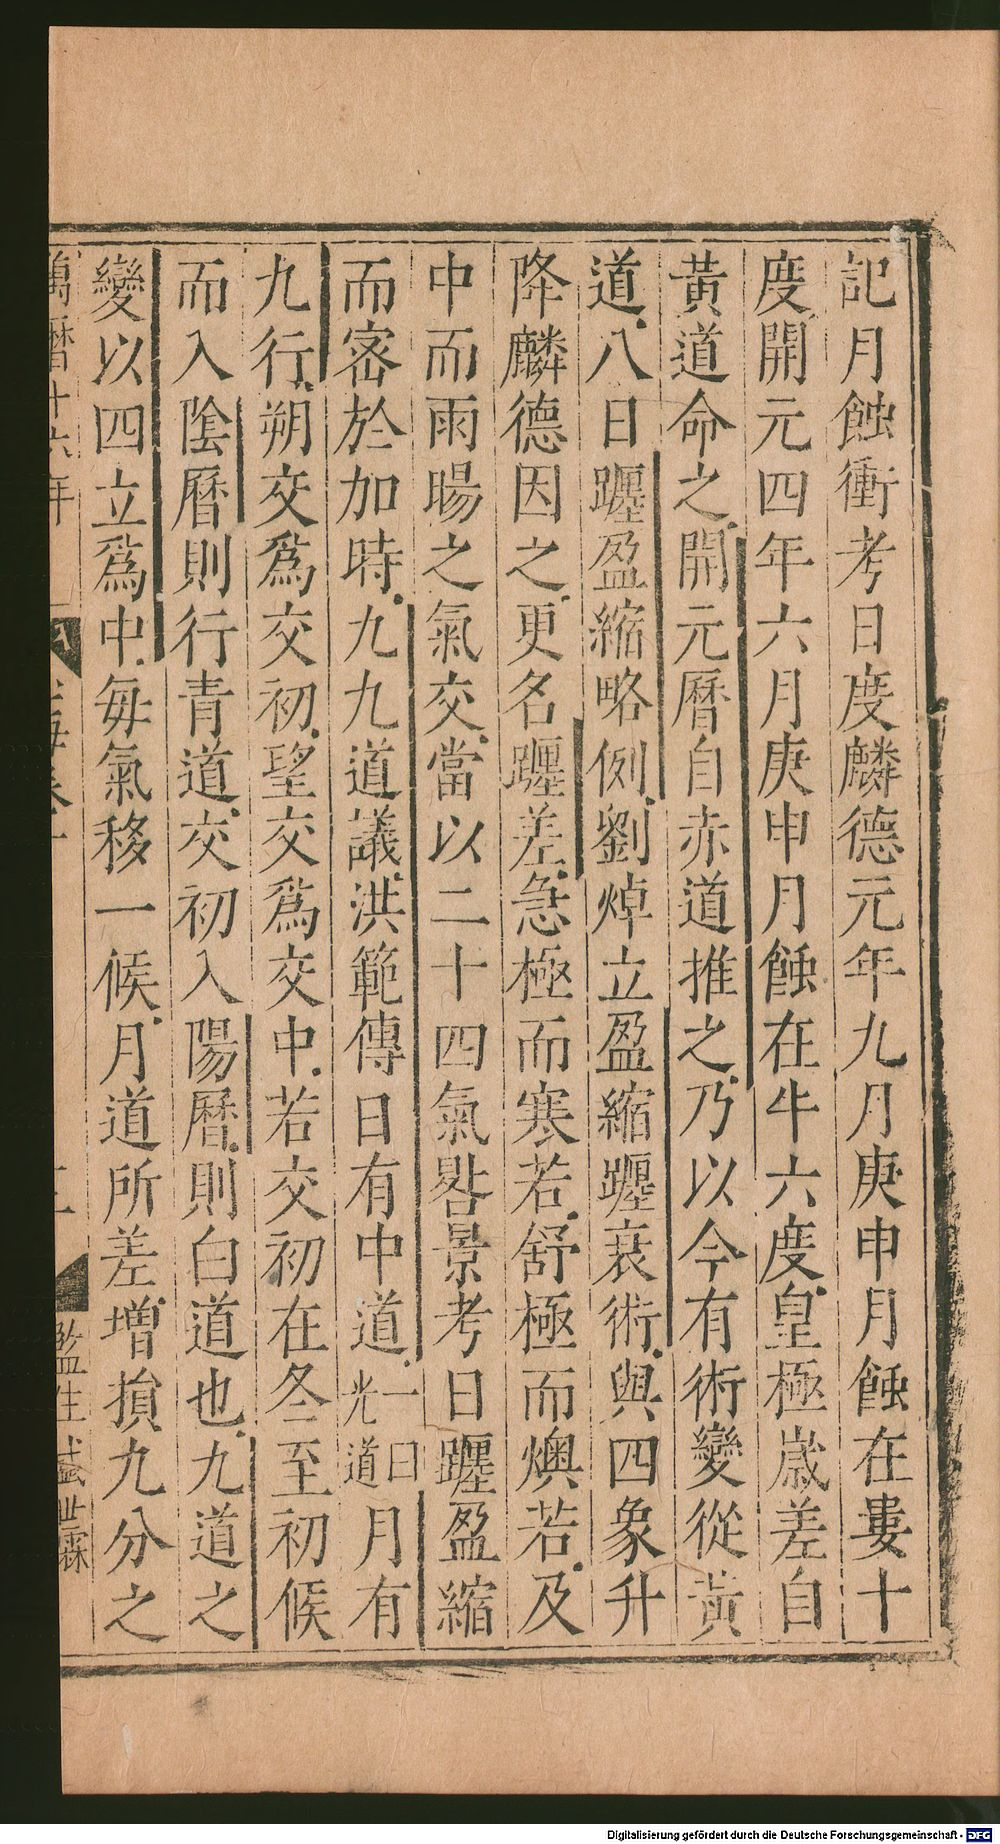 記月蝕衝考日度麟德元年九月庚申月蝕在婁十
度開元四年六月庚申月蝕在牛六度皇極歲差自
黃道命之開元曆自赤道推之乃以今有術變從黃
道八日躔盈縮略例劉焯立盈縮躔衰術與四象升
降麟德因之更名躔差急極而寒若舒極而燠若及
中而雨暘之氣交當以二十四氣晷景考日躔盈縮
而宻於加時九九道議洪範傳日有中道一曰光道月有
九行朔交爲交初望交爲交中若交初在冬至初候
而入隂曆則行青道交初入陽曆則白道也九道之
變以四立爲中毎氣移一候月道所差增損九分之
萬曆十六年
監生
Digitalisierung gefördert durch die Deutsche Forschungsgemeinschaft - DFG